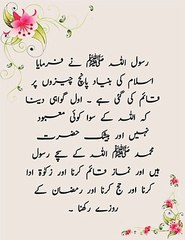 رسول اللہ ﷺ نے فرمایا
اسلام کی بنیاد پانچ چیزوں پر
قائم کی گئی ہے ۔ اول گواہی دینا
کہ اللہ کے سوا کوئی معبود
نہیں اور بیشک حضرت
محمد ﷺ اللہ کے سچے رسول
ہیں اور نماز قائم کرنا اور زکوٰۃ ادا
کرنا اور حج کرنا اور رمضان کے
روزے رکھنا ۔